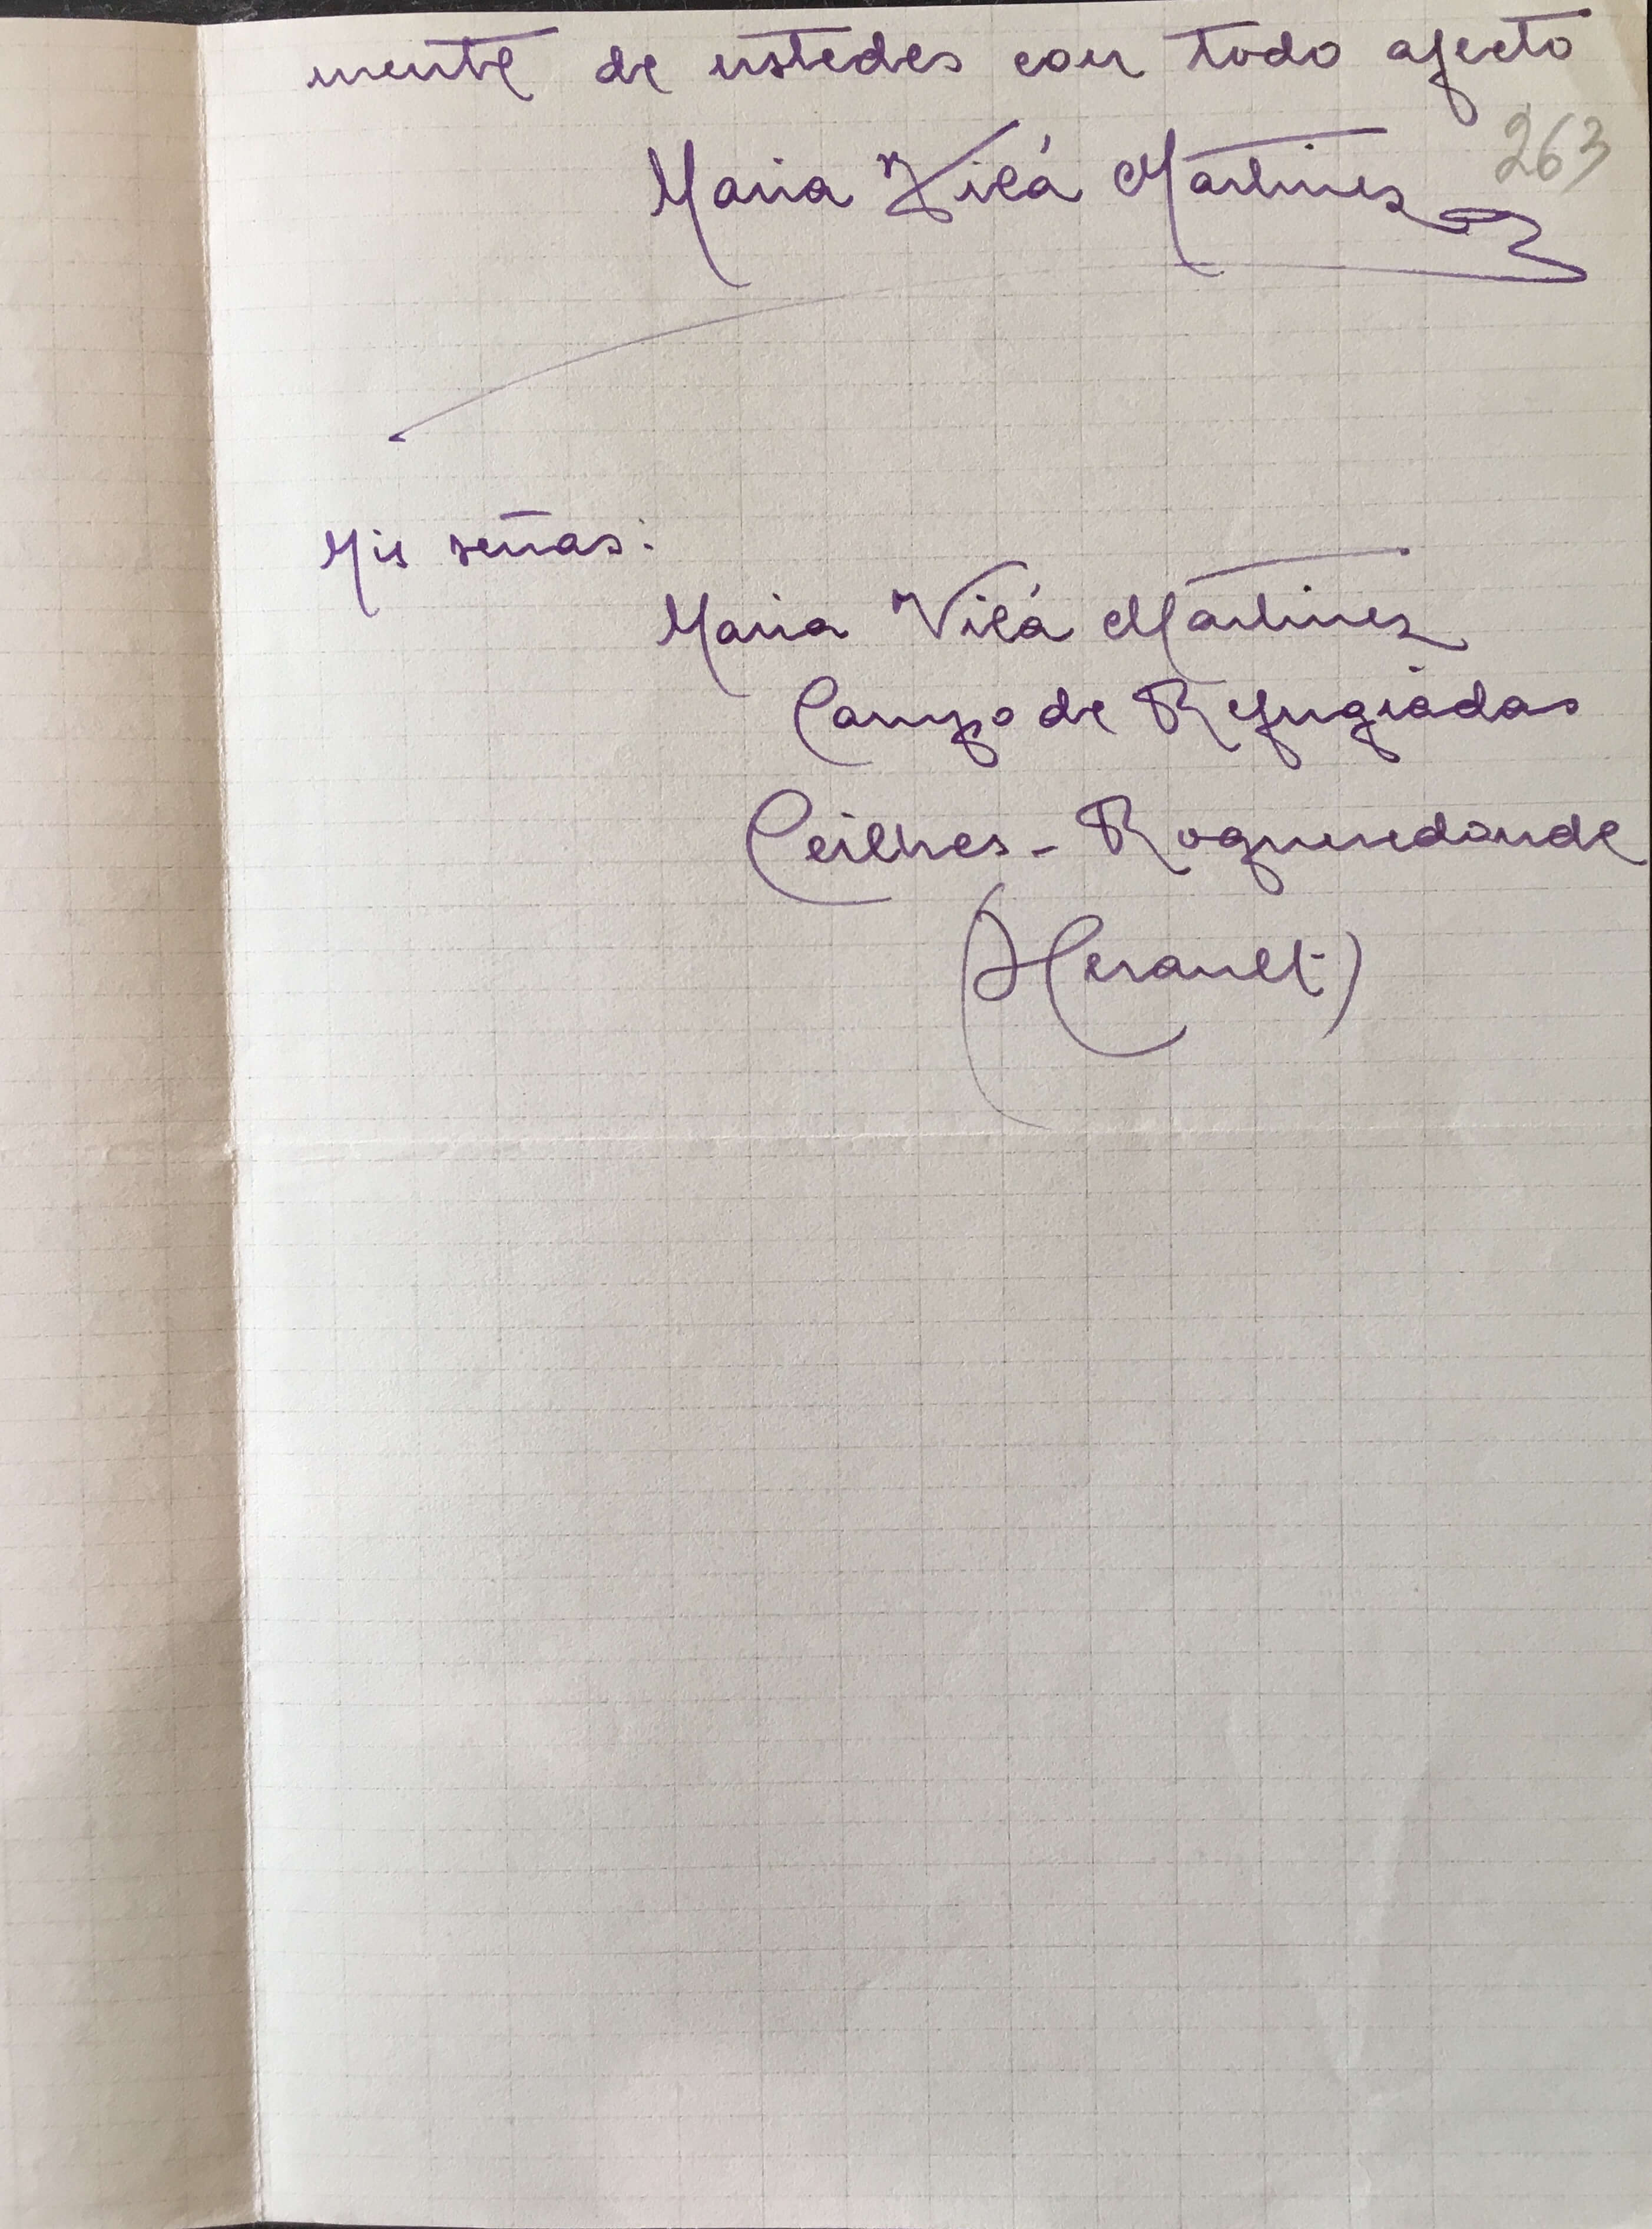 mente de ustedes con todo afecto
263
Maria Vilá Martinez
Mis señas:
Maria Vilá Martinez
Campo de Refugiadas
Ceilhes - Roqueredonde
(Herault)